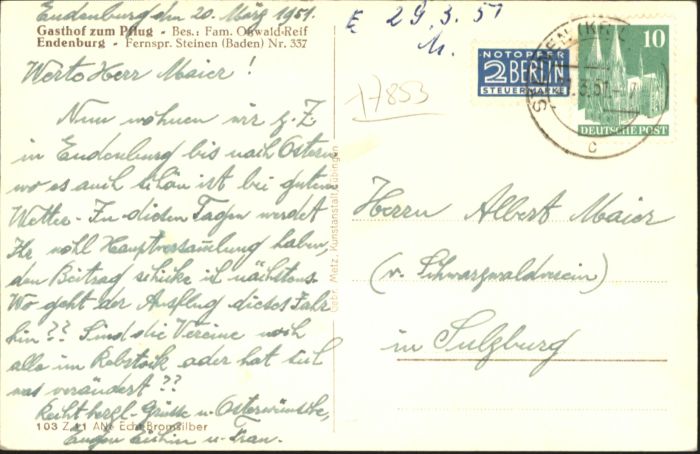 Endenburg den 20. März 1951.
Gasthof zum Pflug - Bes.: Fam. Oswald Reif
Endenburg - Fernspr. Steinen (Baden) Nr. 337
Werte Herr Maier!
Nun wohnen wir z. Z.
in Endenburg bis nach Ostern
wo es auch schön ist bei gutem
Wetter. In diesen Tagen werdet
Ihr wohl Hauptversammlung haben,
den Beitrag schicke ich nächstens.
Wo geht der Ausflug dieses Jahr
hin?? Sind die Vereine noch
alle im Rebstock oder hat sich
was verändert??
Recht herzl. Grüsse u. Osterwünsche,
Eugen u. Frau.
103 Z 11 AN. Echt Bromsilber
Gebr. Metz, Kunstanstalt, Tübingen
E 29.3.51
17853
NOTOPFER
2 BERLIN
STEUERMARKE
10
DEUTSCHE POST
STEINEN
3.51
c
Herrn Albert Maier
(v. Schwarzwaldverein)
in Sulzburg